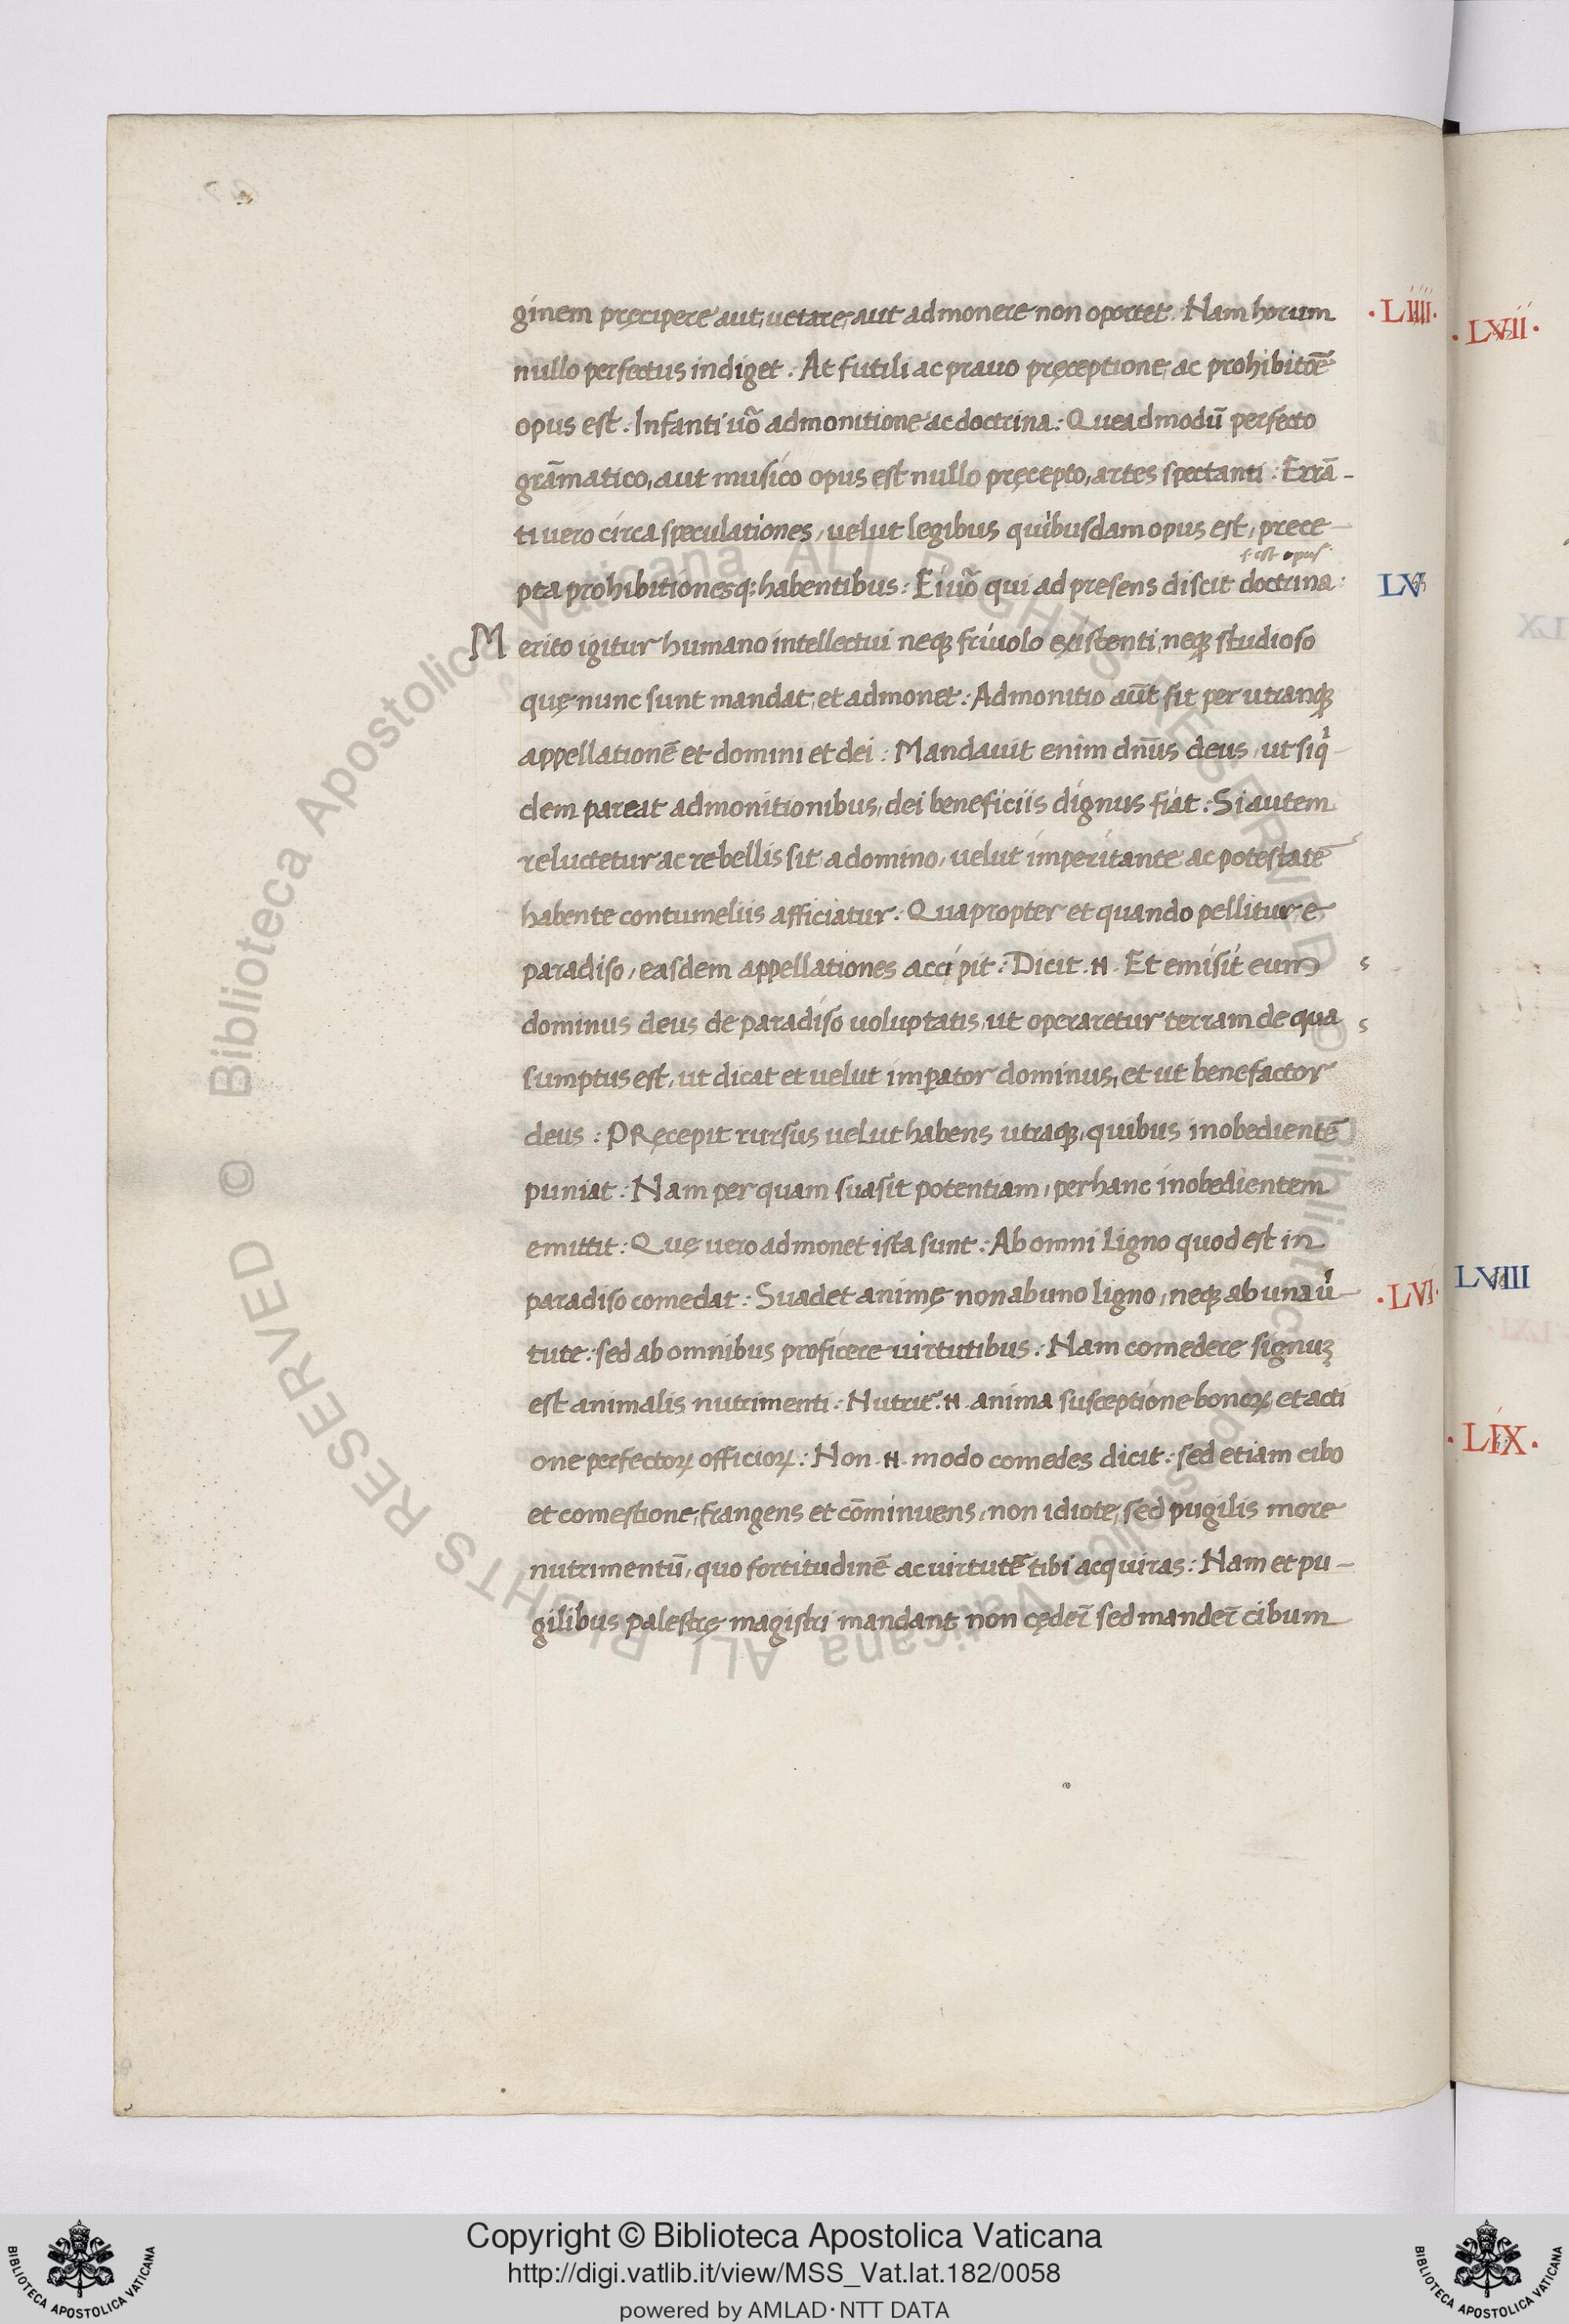 ginem pręcipere aut uetare, aut admonere non oportet. Nam horum
·LIIII·
nullo perfectus indiget. At futili ac prauo pręceptione, ac prohibitiōe
opus est. Infanti uō admonitione ac doctrina: Queadmodū perfecto
grāmatico, aut musico opus est nullo pręcepto, artes spectanti: Errā-
ti uero circa speculationes, uelut legibus quibusdam opus est, prece-
s. est opus
pta prohibitionesq; habentibus: Ei uō qui ad presens discit doctrina:
LV
Merito igitur humano intellectui neq; friuolo existenti, neq; studioso
quę nunc sunt mandat, et admonet: Admonitio aūt fit per utranq;
appellationē et domini et dei: Mandauit enim dn̄s deus, ut siq-
dem pareat admonitionibus, dei beneficiis dignus fiat: Si autem
reluctetur ac rebellis sit a domino, uelut imperitante ac potestatē
habente contumeliis afficiatur: Quapropter et quando pellitur e
paradiso, easdem appellationes accipit: Dicit .N. Et emisit eum
dominus deus de paradiso uoluptatis, ut operaretur terram de qua
sumptus est, ut dicat et uelut impator dominus, et ut benefactor
deus: Pręcepit rursus uelut habens utraq;, quibus inobedientē
puniat: Nam per quam suasit potentiam, per hanc inobedientem
emittit: Quę uero admonet ista sunt: Ab omni ligno quod est in
paradiso comedat: Suadet animę non ab uno ligno, neq; ab una uir-
·LVI·
tute: sed ab omnibus proficere uirtutibus: Nam comedere signuz
est animalis nutrimenti: Nutrit̄ .N. anima susceptione bonoꝝ et acti
one perfectoꝝ officioꝝ: Non .N. modo comedes dicit: sed etiam cibo
et comestione, frangens et cōminuens, non idiote, sed pugilis more
nutrimentū, quo fortitudinē ac uirtutē tibi acquiras: Nam et pu-
gilibus palestrę magistri mandant non cęder̄ sed mander̄ cibum
·LVII·
LVIII
·LIX·
Copyright © Biblioteca Apostolica Vaticana
http://digi.vatlib.it/view/MSS_Vat.lat.182/0058
powered by AMLAD·NTT DATA
BIBLIOTECA APOSTOLICA VATICANA
BIBLIOTECA APOSTOLICA VATICANA
© Biblioteca Apostolica Vaticana ALL RIGHTS RESERVED © Biblioteca Apostolica Vaticana ALL RIGHTS RESERVED